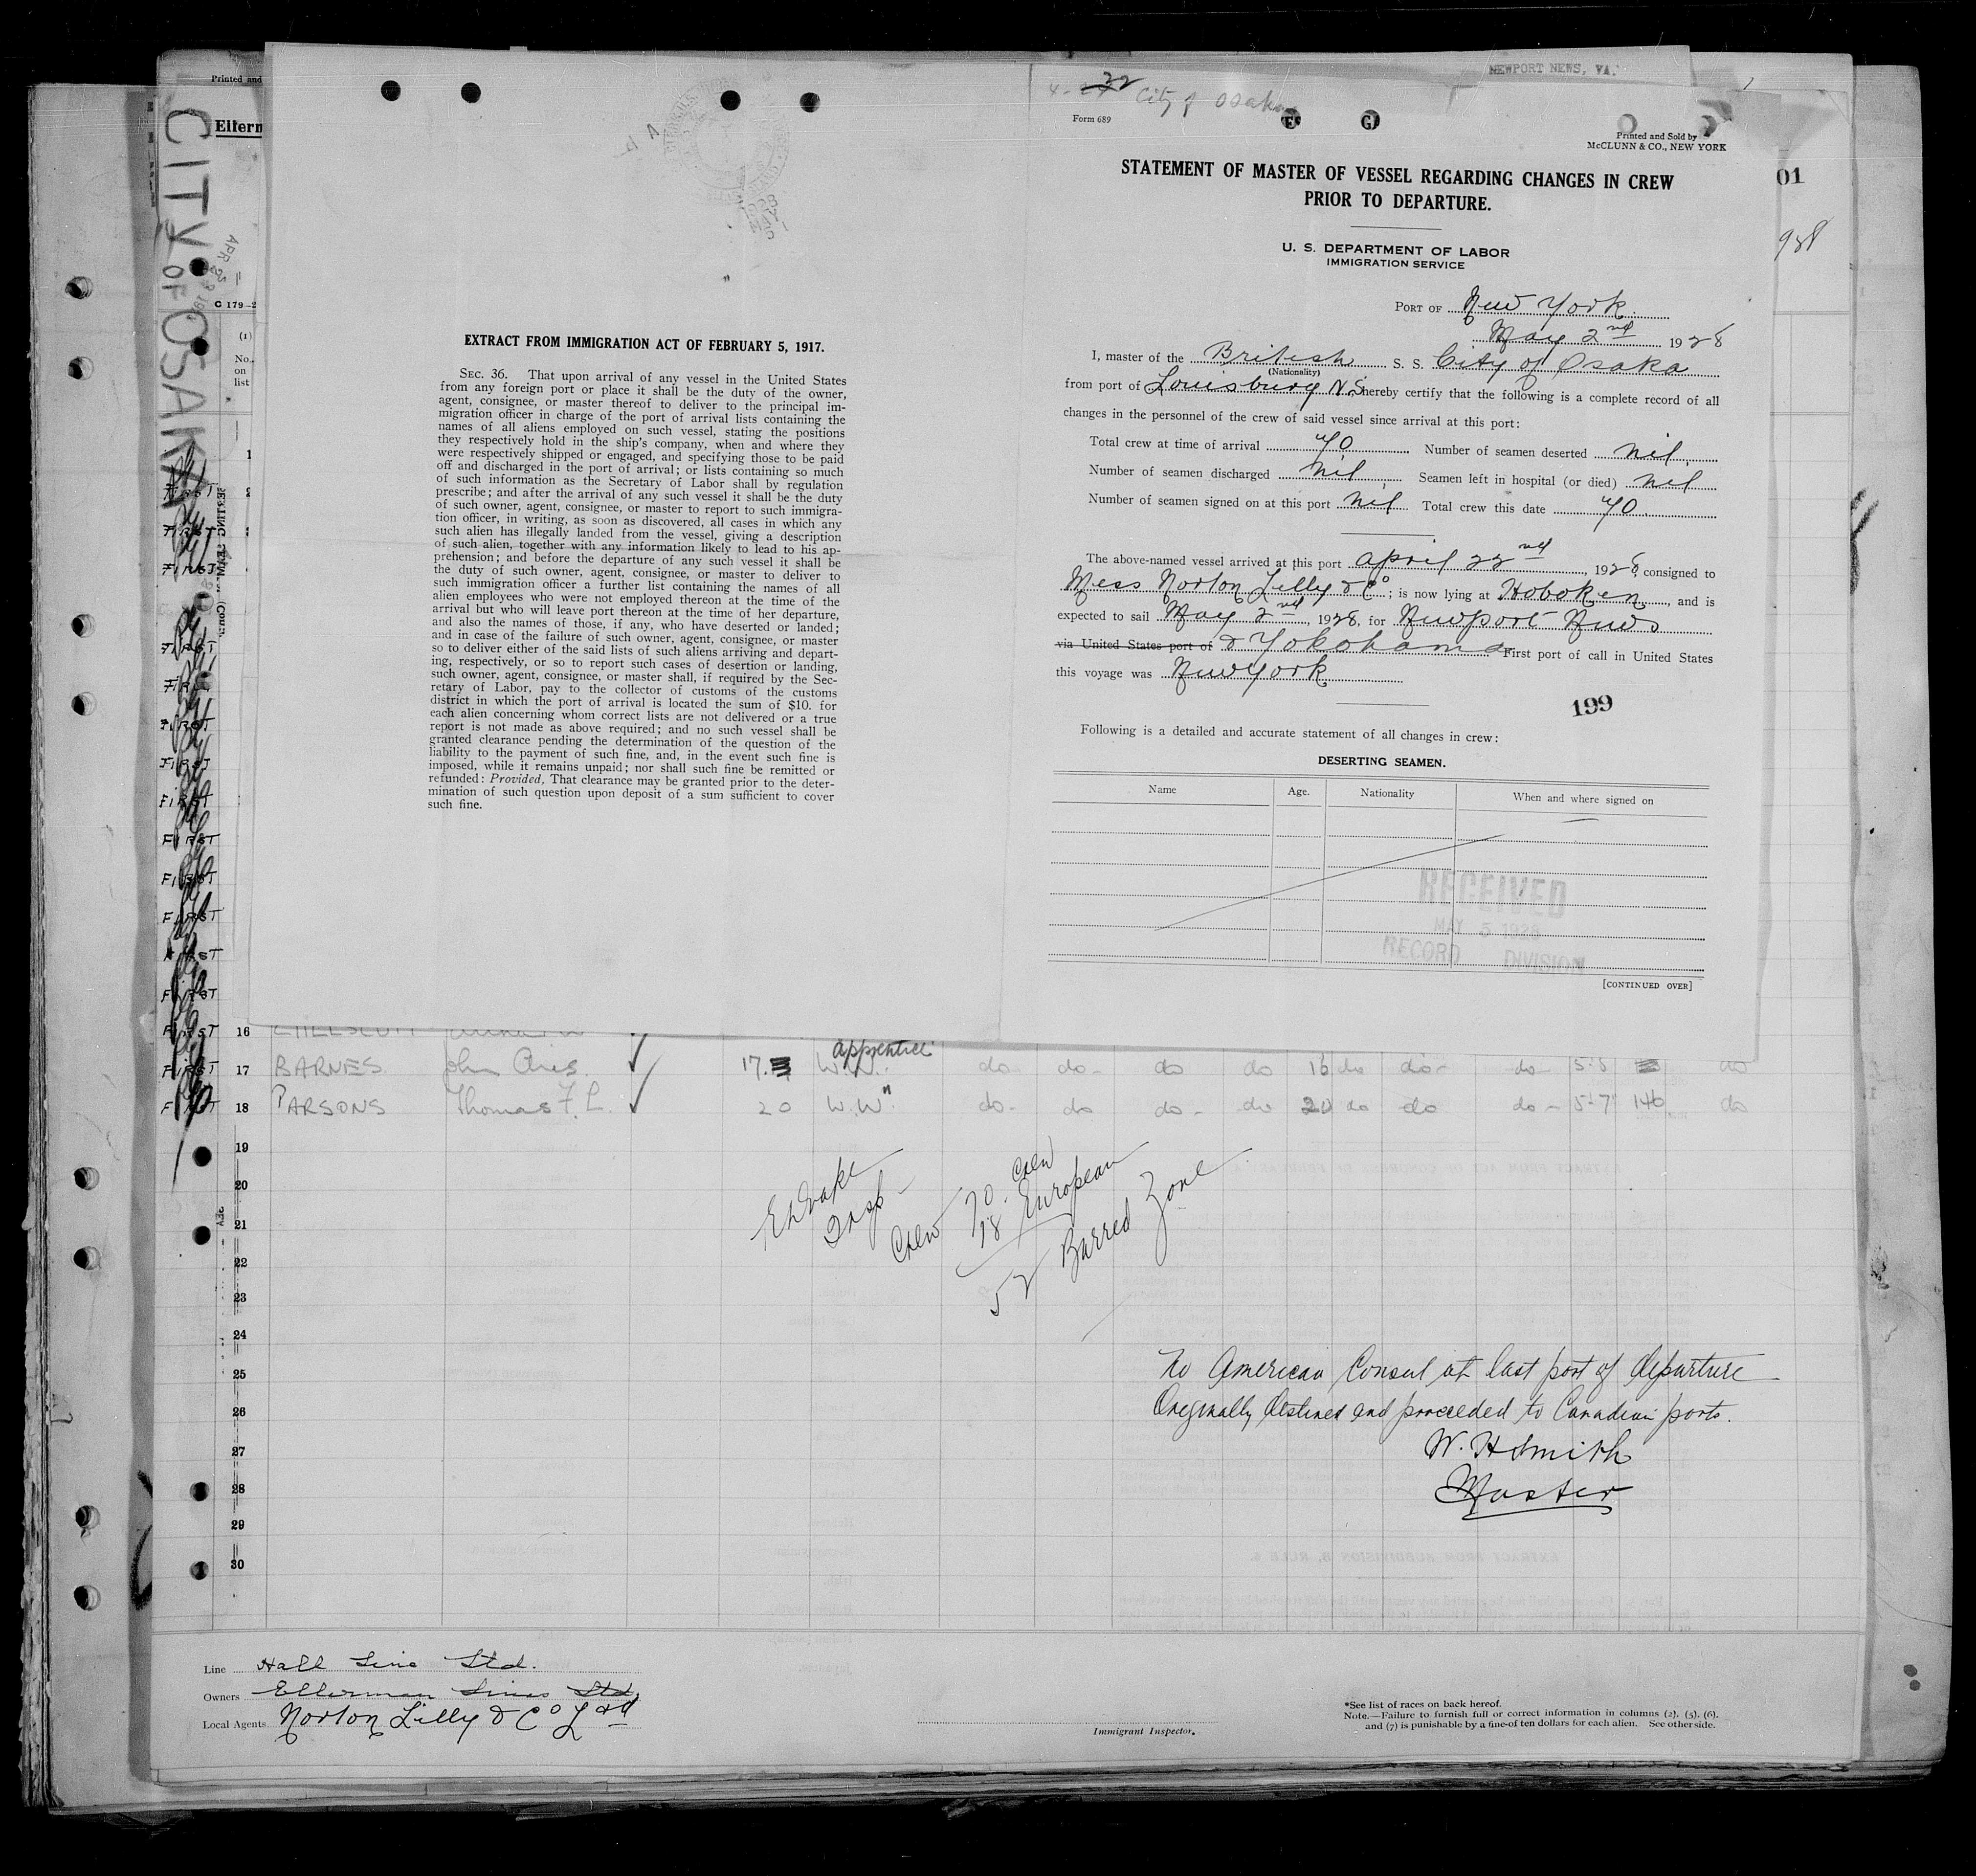 Printed and
Ellerm
CITY OF OSAKA
APR 25
C 179-2
(1)
No.
on
list
EXTRACT FROM IMMIGRATION ACT OF FEBRUARY 5, 1917.
SEC. 36. That upon arrival of any vessel in the United States
from any foreign port or place it shall be the duty of the owner,
agent, consignee, or master thereof to deliver to the principal im-
migration officer in charge of the port of arrival lists containing the
names of all aliens employed on such vessel, stating the positions
they respectively hold in the ship's company, when and where they
were respectively shipped or engaged, and specifying those to be paid
off and discharged in the port of arrival; or lists containing so much
of such information as the Secretary of Labor shall by regulation
prescribe; and after the arrival of any such vessel it shall be the duty
of such owner, agent, consignee, or master to report to such immigra-
tion officer, in writing, as soon as discovered, all cases in which any
such alien has illegally landed from the vessel, giving a description
of such alien, together with any information likely to lead to his ap-
prehension; and before the departure of any such vessel it shall be
the duty of such owner, agent, consignee, or master to deliver to
such immigration officer a further list containing the names of all
alien employees who were not employed thereon at the time of the
arrival but who will leave port thereon at the time of her departure,
and also the names of those, if any, who have deserted or landed;
and in case of the failure of such owner, agent, consignee, or master
so to deliver either of the said lists of such aliens arriving and depart-
ing, respectively, or so to report such cases of desertion or landing,
such owner, agent, consignee, or master shall, if required by the Sec-
retary of Labor, pay to the collector of customs of the customs
district in which the port of arrival is located the sum of $10. for
each alien concerning whom correct lists are not delivered or a true
report is not made as above required; and no such vessel shall be
granted clearance pending the determination of the question of the
liability to the payment of such fine, and, in the event such fine is
imposed, while it remains unpaid; nor shall such fine be remitted or
refunded: Provided, That clearance may be granted prior to the deter-
mination of such question upon deposit of a sum sufficient to cover
such fine.
NEWPORT NEWS, VA.
City of Osaka
Form 689
Printed and Sold by
McCLUNN & CO., NEW YORK
STATEMENT OF MASTER OF VESSEL REGARDING CHANGES IN CREW
PRIOR TO DEPARTURE.
01
U. S. DEPARTMENT OF LABOR
IMMIGRATION SERVICE
PORT OF New York
May 2nd 1928
I, master of the British S. S. City of Osaka
(Nationality)
from port of Louisburg N.S. hereby certify that the following is a complete record of all
changes in the personnel of the crew of said vessel since arrival at this port:
Total crew at time of arrival 70 Number of seamen deserted nil
Number of seamen discharged nil Seamen left in hospital (or died) nil
Number of seamen signed on at this port nil Total crew this date 70
The above-named vessel arrived at this port april 22nd, 1928, consigned to
Mess Norton Lilly & Co; is now lying at Hoboken, and is
expected to sail May 2nd, 1928, for Newport News
via United States port of & Yokohama First port of call in United States
this voyage was New York
199
Following is a detailed and accurate statement of all changes in crew:
DESERTING SEAMEN.
Name Age. Nationality When and where signed on
RECEIVED
MAY 5 1928
RECORD DIVISION
[CONTINUED OVER]
FIRST 16
FIRST 17 BARNES John Chris. 17 apprentice do do do do 16 do do do 5-8 do
FIRST 18 PARSONS Thomas F. L. 20 W.W. " do do do do 20 do do do 5-7 140 do
19
20
21
22
23
24
25
26
27
28
29
30
Insp
Crew 70 Crew
18 European
52 Barred Zone
No American Consul at last port of departure
Originally destined and proceeded to Canadian ports.
W. H Smith
Master
Line Hall Line Ltd.
Owners Ellerman Lines Ltd.
Local Agents Norton Lilly & Co Ltd
Immigrant Inspector.
*See list of races on back hereof.
Note.—Failure to furnish full or correct information in columns (2), (5), (6),
and (7) is punishable by a fine of ten dollars for each alien. See other side.